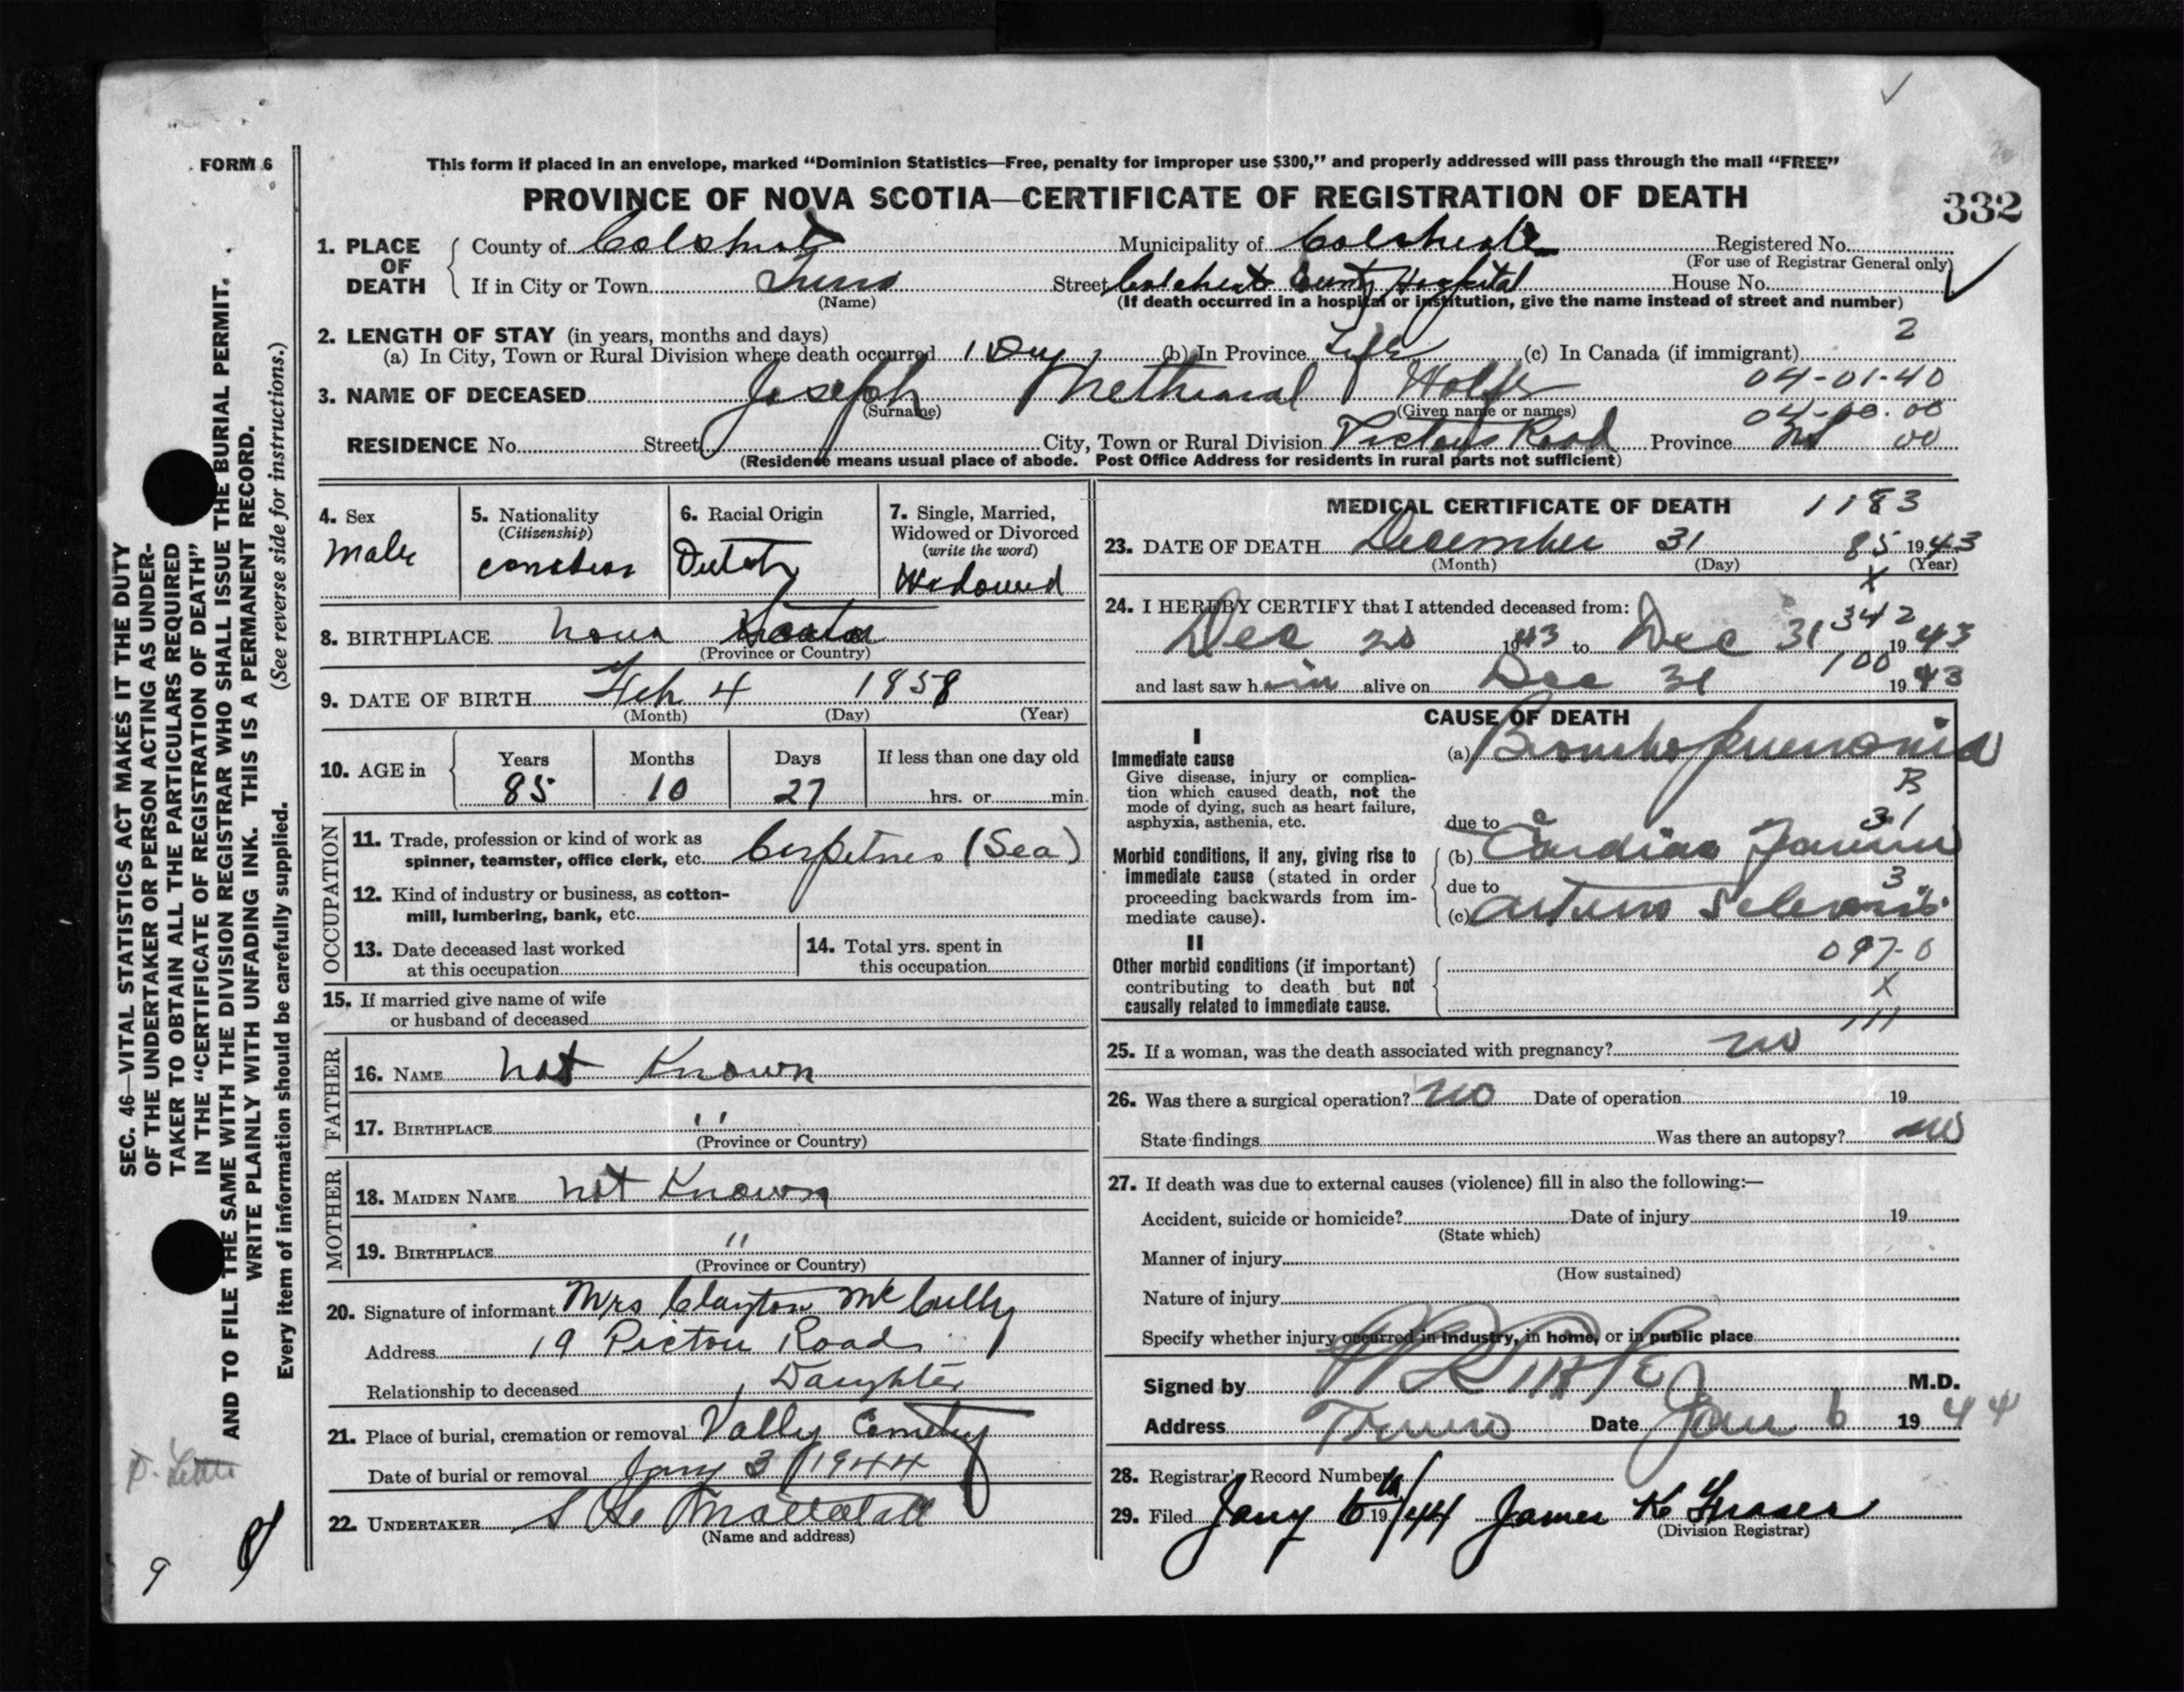 FORM 6
This form if placed in an envelope, marked "Dominion Statistics—Free, penalty for improper use $300," and properly addressed will pass through the mail "FREE"
PROVINCE OF NOVA SCOTIA—CERTIFICATE OF REGISTRATION OF DEATH
332
1. PLACE OF DEATH
County of Colchester Municipality of Colchester Registered No.
(For use of Registrar General only)
If in City or Town Truro Street Colchester County Hospital House No.
(Name) (If death occurred in a hospital or institution, give the name instead of street and number)
2. LENGTH OF STAY (in years, months and days) 2
(a) In City, Town or Rural Division where death occurred 1 Day (b) In Province Life (c) In Canada (if immigrant)
04-01-40
3. NAME OF DECEASED Joseph Wolfe
(Surname) (Given name or names) 04-00.00
RESIDENCE No. Street City, Town or Rural Division Road Province NS 00
(Residence means usual place of abode. Post Office Address for residents in rural parts not sufficient)
4. Sex
Male
5. Nationality
(Citizenship)
6. Racial Origin
Dutch
7. Single, Married, Widowed or Divorced
(write the word)
Widowed
8. BIRTHPLACE Nova Scotia
(Province or Country)
9. DATE OF BIRTH Feb 4 1858
(Month) (Day) (Year)
10. AGE in
Years Months Days If less than one day old
85 10 27 hrs. or min.
OCCUPATION
11. Trade, profession or kind of work as
spinner, teamster, office clerk, etc. (Sea)
12. Kind of industry or business, as cotton-
mill, lumbering, bank, etc.
13. Date deceased last worked
at this occupation
14. Total yrs. spent in
this occupation
15. If married give name of wife
or husband of deceased
FATHER
16. NAME Not Known
17. BIRTHPLACE "
(Province or Country)
MOTHER
18. MAIDEN NAME Not Known
19. BIRTHPLACE "
(Province or Country)
20. Signature of informant Mrs Clayton McCully
Address 19 Pictou Road
Relationship to deceased Daughter
21. Place of burial, cremation or removal Vally Cemetry
Date of burial or removal Jany 3 1944
22. UNDERTAKER
(Name and address)
MEDICAL CERTIFICATE OF DEATH 1183
23. DATE OF DEATH December 31 85 1943
(Month) (Day) (Year)
X
24. I HEREBY CERTIFY that I attended deceased from: 342
Dec 20 1943 to Dec 31 1943
100
and last saw him alive on Dec 31 1943
CAUSE OF DEATH
I
Immediate cause
Give disease, injury or complica-
tion which caused death, not the
mode of dying, such as heart failure,
asphyxia, asthenia, etc.
(a) Bronchopneumonia
B
due to
31
Morbid conditions, if any, giving rise to
immediate cause (stated in order
proceeding backwards from im-
mediate cause).
(b) Cardiac
due to
3
(c) Arterio Sclerosis
II
Other morbid conditions (if important)
contributing to death but not
causally related to immediate cause.
097-0
X
111
25. If a woman, was the death associated with pregnancy? no
26. Was there a surgical operation? no Date of operation 19
State findings Was there an autopsy? no
27. If death was due to external causes (violence) fill in also the following:—
Accident, suicide or homicide? Date of injury 19
(State which)
Manner of injury
(How sustained)
Nature of injury
Specify whether injury occurred in industry, in home, or in public place
Signed by M.D.
Address Truro Date Jan 6 1944
28. Registrar's Record Number
29. Filed Jany 6th 19/44 James K Fraser
(Division Registrar)
SEC. 46—VITAL STATISTICS ACT MAKES IT THE DUTY
OF THE UNDERTAKER OR PERSON ACTING AS UNDER-
TAKER TO OBTAIN ALL THE PARTICULARS REQUIRED
IN THE "CERTIFICATE OF REGISTRATION OF DEATH"
AND TO FILE THE SAME WITH THE DIVISION REGISTRAR WHO SHALL ISSUE THE BURIAL PERMIT.
WRITE PLAINLY WITH UNFADING INK. THIS IS A PERMANENT RECORD.
Every item of information should be carefully supplied. (See reverse side for instructions.)
9